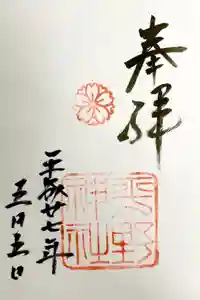 奉拝
平野
神社
平成廿七年
五月五日